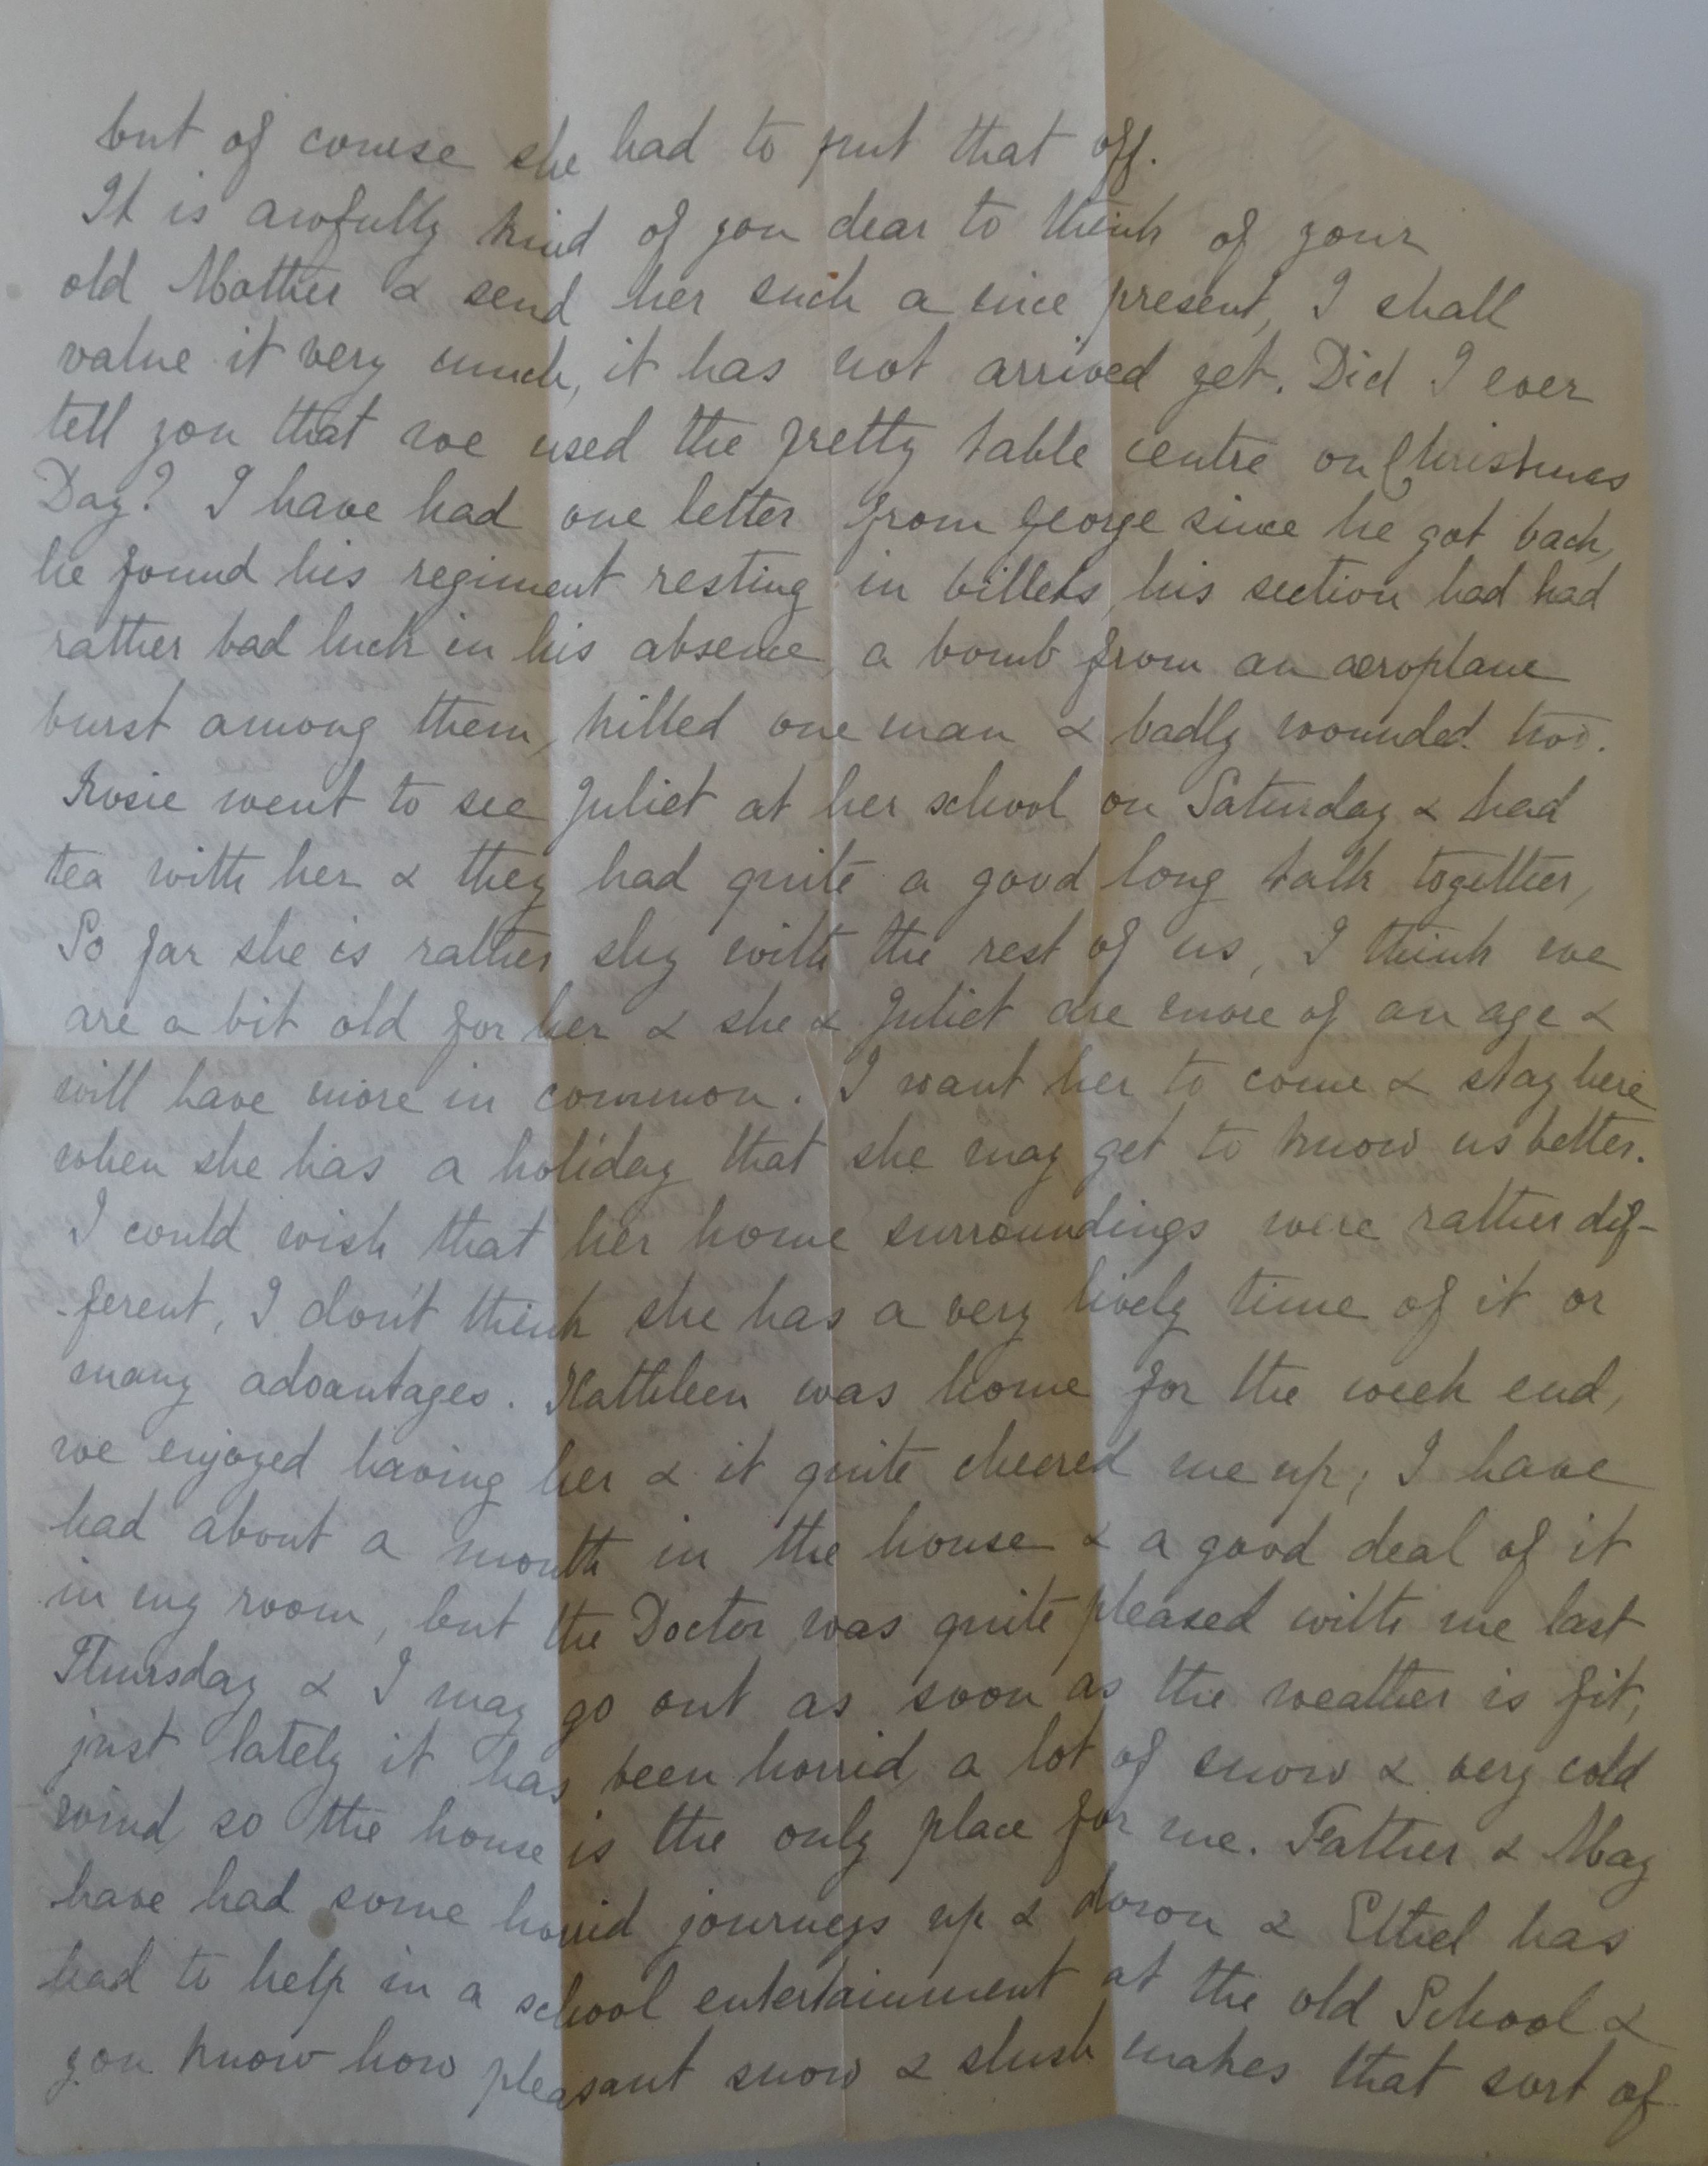 but of course she had to put that off.
It is awfully kind of you dear to think of your
old Mother & send her such a nice present, I shall
value it very much, it has not arrived yet. Did I ever
tell you that we used the pretty table centre on Christmas
Day? I have had one letter from George since he got back,
he found his regiment resting in billets, his section had had
rather bad luck in his absence, a bomb from an aeroplane
burst among them, killed one man & badly wounded two.
Rosie went to see Juliet at her school on Saturday & had
tea with her & they had quite a good long talk together,
So far she is rather shy with the rest of us, I think we
are a bit old for her & she & Juliet are more of an age &
will have more in common. I want her to come & stay here
when she has a holiday that she may get to know us better.
I could wish that her home surroundings were rather dif-
-ferent, I don't think she has a very lively time of it or
many advantages. Kathleen was home for the week end,
we enjoyed having her & it quite cheered me up; I have
had about a month in the house & a good deal of it
in my room, but the Doctor was quite pleased with me last
Thursday & I may go out as soon as the weather is fit,
just lately it has been horrid, a lot of snow & very cold
wind, so the house is the only place for me. Father & May
have had some horrid journeys up & down & Ethel has
had to help in a school entertainment at the old School &
you know how pleasant snow & slush makes that sort of